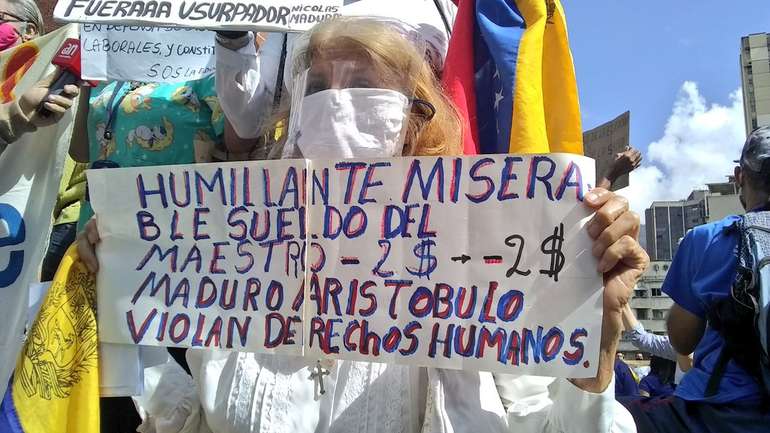 FUERAAA USURPADOR NICOLAS
MADURO
EN DEFENSA
LABORALES, Y CONSTIT
S.O.S LA
HUMILLANTE. MISERA
BLE SUELDO DEL
MAESTRO - 2$ → - 2$
MADURO ARISTOBULO
VIOLAN DERECHOS HUMANOS.